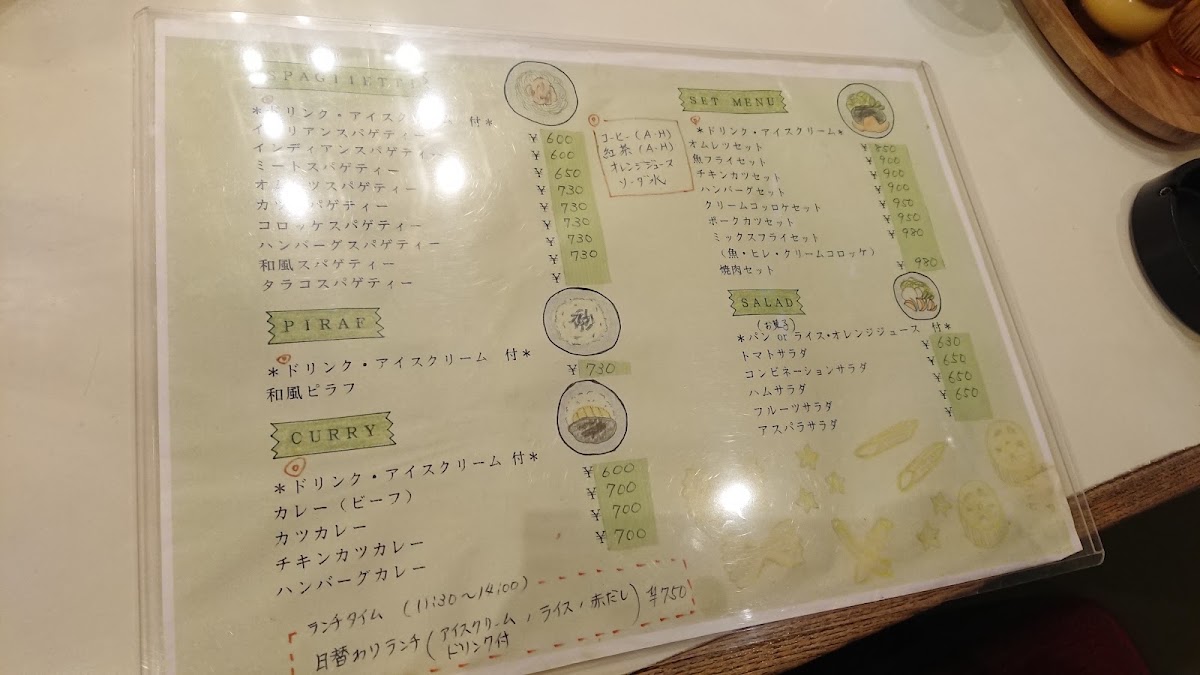 SPAGHETTI
ドリンク・アイスクリーム 付*
イタリアンスパゲティー ¥600
インディアンスパゲティー ¥600
ミートスパゲティー ¥650
オムレツスパゲティー ¥730
カツスパゲティー ¥730
コロッケスパゲティー ¥730
ハンバーグスパゲティー ¥730
和風スパゲティー ¥730
タラコスパゲティー ¥
コーヒー(A・H)
紅茶(A・H)
オレンジジュース
ソーダ水
PIRAF
*ドリンク・アイスクリーム 付*
和風ピラフ ¥730
CURRY
*ドリンク・アイスクリーム 付*
カレー(ビーフ) ¥600
カツカレー ¥700
チキンカツカレー ¥700
ハンバーグカレー ¥700
ランチタイム (11:30〜14:00)
日替わりランチ(アイスクリーム、ライス、赤だし) ¥750
ドリンク付
SET MENU
*ドリンク・アイスクリーム*
オムレツセット ¥850
魚フライセット ¥900
チキンカツセット ¥900
ハンバーグセット ¥900
クリームコッロケセット ¥950
ポークカツセット ¥950
ミックスフライセット ¥980
(魚・ヒレ・クリームコロッケ)
焼肉セット ¥980
SALAD
(お菓子)
*パン or ライス・オレンジジュース 付*
トマトサラダ ¥630
コンビネーションサラダ ¥650
ハムサラダ ¥650
フルーツサラダ ¥650
アスパラサラダ ¥